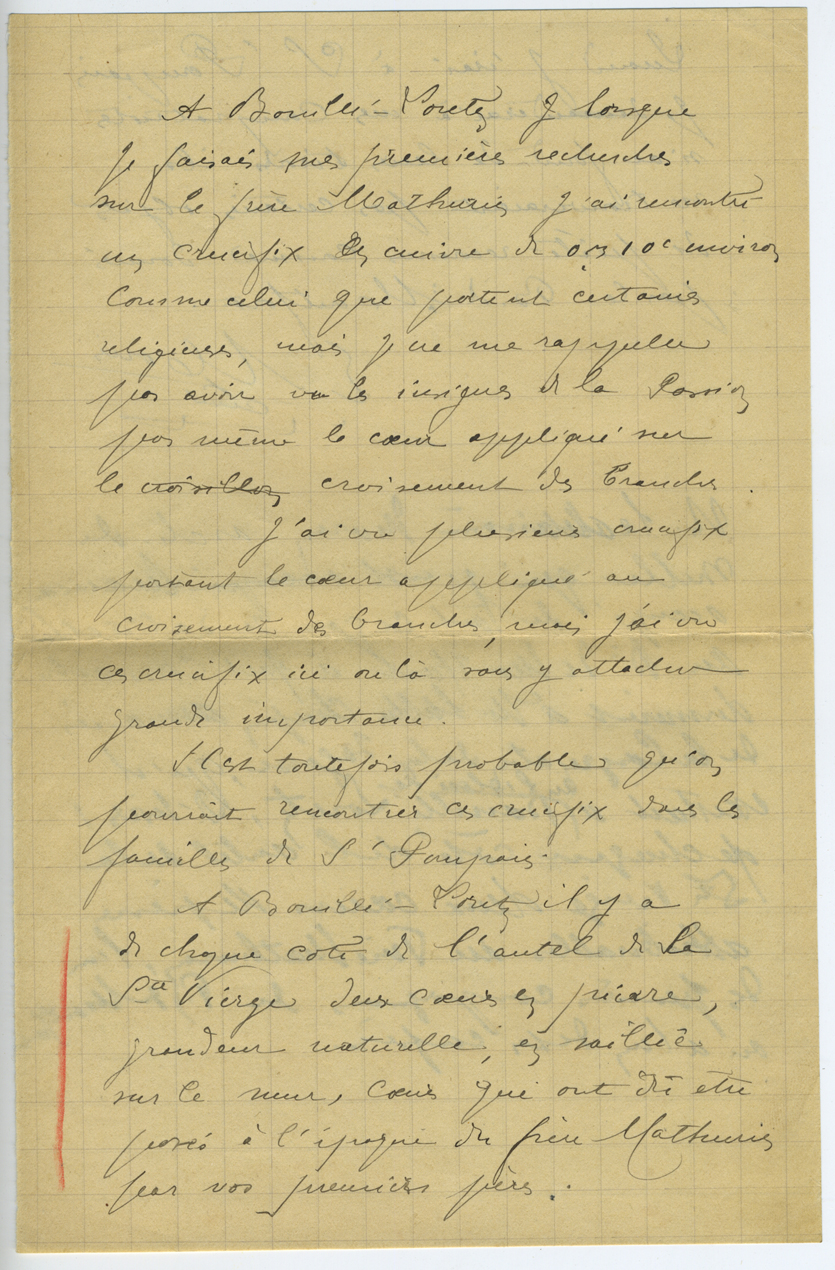 A Bouillé-Loretz, lorsque
je faisais mes premières recherches
sur le frère Mathurin j'ai rencontré
un crucifix en cuivre de 0m10c environ
comme celui que portent certaines
religieuses, mais je ne me rappelle
pas avoir vu les insignes de la Passion
pas même le cœur appliqué sur
le croisillon croisement des branches.
J'ai vu plusieurs crucifix
portant le cœur appliqué au
croisement des branches, mais j'ai vu
ces crucifix ici ou là sans y attacher
grande importance.
Il est toutefois probable qu'on
pourrait rencontrer ces crucifix dans les
familles de St Pompain.
A Bouillé-Loretz il y a
de chaque côté de l'autel de la
Ste Vierge deux cœurs en pierre,
grandeur naturelle, en saillie
sur le mur, cœurs qui ont dû être
posés à l'époque du frère Mathurin
par vos premiers pères.